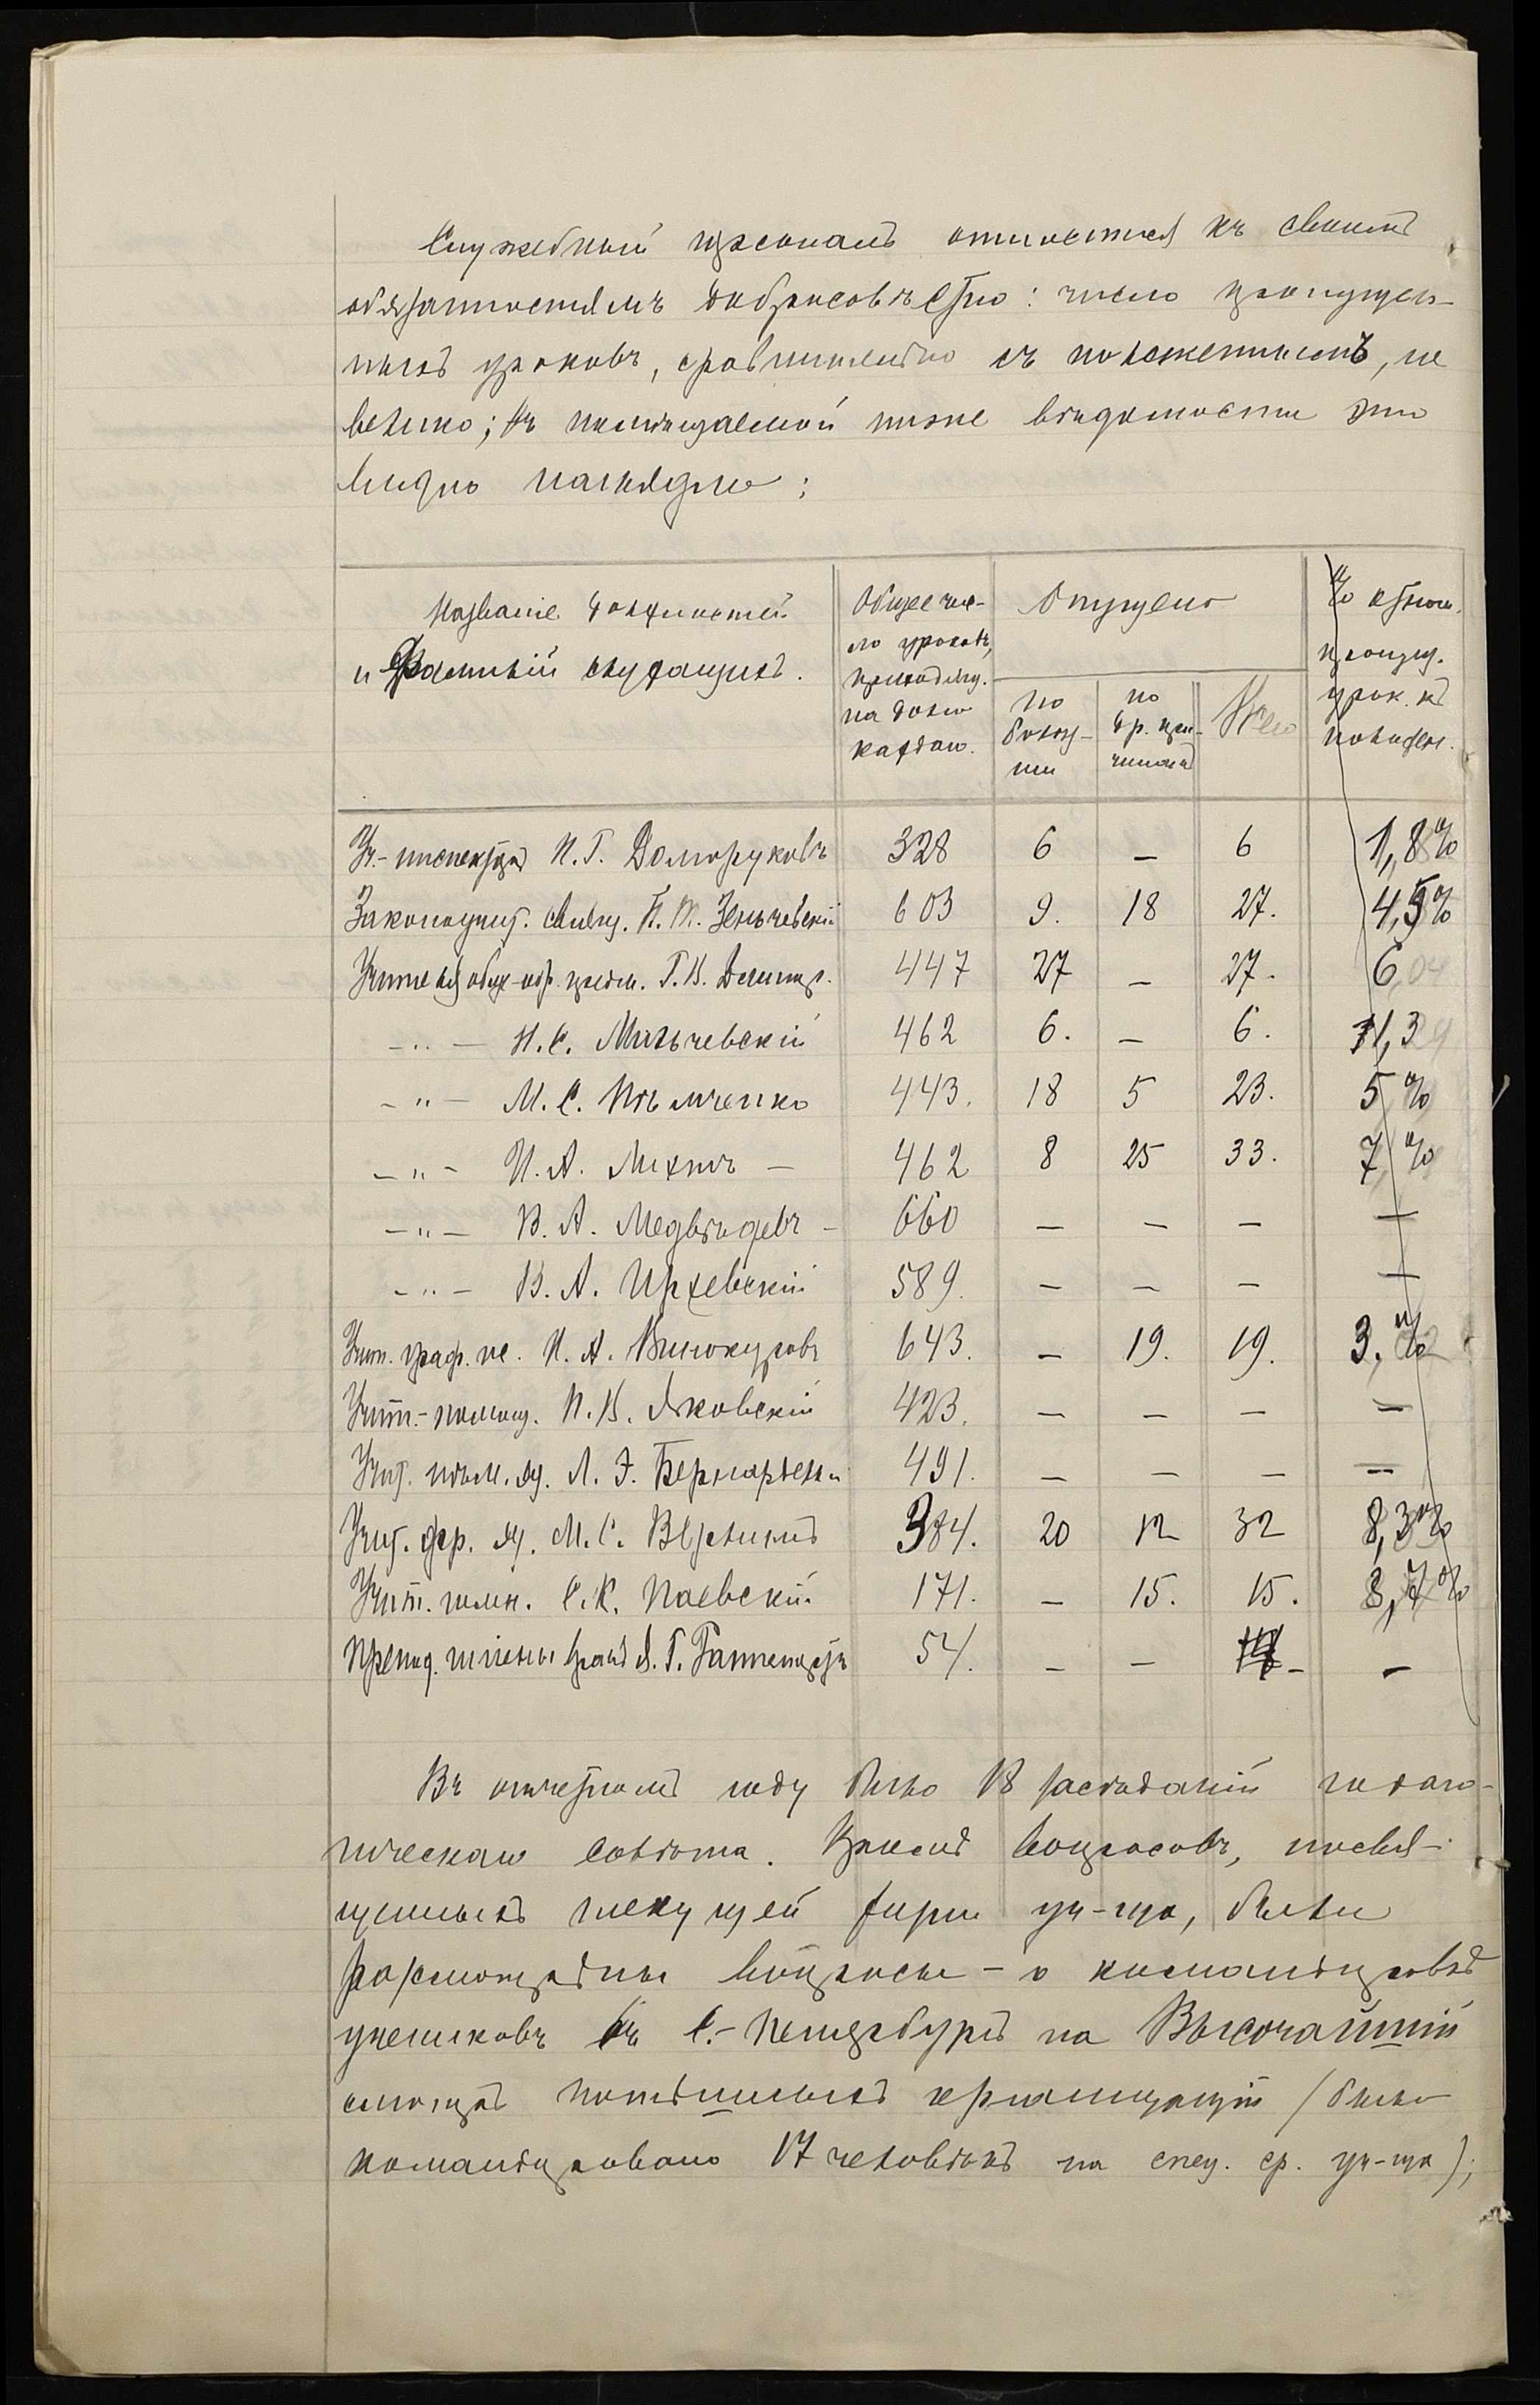 Служебный персоналъ относится къ своимъ
обязанностямъ добросовѣстно: число пропущен-
ныхъ уроковъ, сравнительно съ положеннымъ, не
велико; въ помѣщаемой ниже вѣдомости это
видно наглядно:
Названіе должностей
и фамилій служащихъ.
Общее чис-
ло уроковъ,
приходящ.
на долю
каждаго.
Опущено
по
болѣз-
ни
по
др. при-
чинамъ
Всего
% отнош.
пропущ.
урок. къ
положен.
Уч.-инспекторъ П. Г. Долгоруковъ 328 6 — 6 1,8%
Законоучит. свящ. П. М. 603 9. 18 27. 4,5%
Учитель общ.-обр. предм. Г. В. 447 27 — 27. 6,04
— " — Н. С. Мигычевскій 462 6. — 6. 1,3
— " — М. С. Нѣмченко 443. 18 5 23. 5 %
— " — И. А. Михничъ — 462 8 25 33. 7 %
— " — В. А. Медвѣдевъ — 660 — — — —
— " — В. А. Иржевскій 589. — — — —
Учит. граф. ис. И. А. Винокуровъ 643. — 19. 19. 3. %
Учит.-помощ. П. В. Яковскій 423. — — — —
Учит. нѣм. яз. Л. Э. Бернарделли 491. — — — —
Учит. фр. яз. М. С. 384. 20 12 32 8,3%
Учит. гимн. С. К. Паевскій 171. — 15. 15. 8,7%
Препод. гигіены врачъ Я. Г. 54. — — — —
Въ отчетномъ году было 18 засѣданій педаго-
гическаго совѣта. Кромѣ вопросовъ, посвя-
щенныхъ текущей жизни уч-ща, были
разсмотрѣны вопросы — о командировкѣ
учениковъ въ С.-Петербургъ на Высочайшій
смотръ потѣшныхъ организацій (было
командировано 17 человѣкъ на спец. ср. уч-ща);